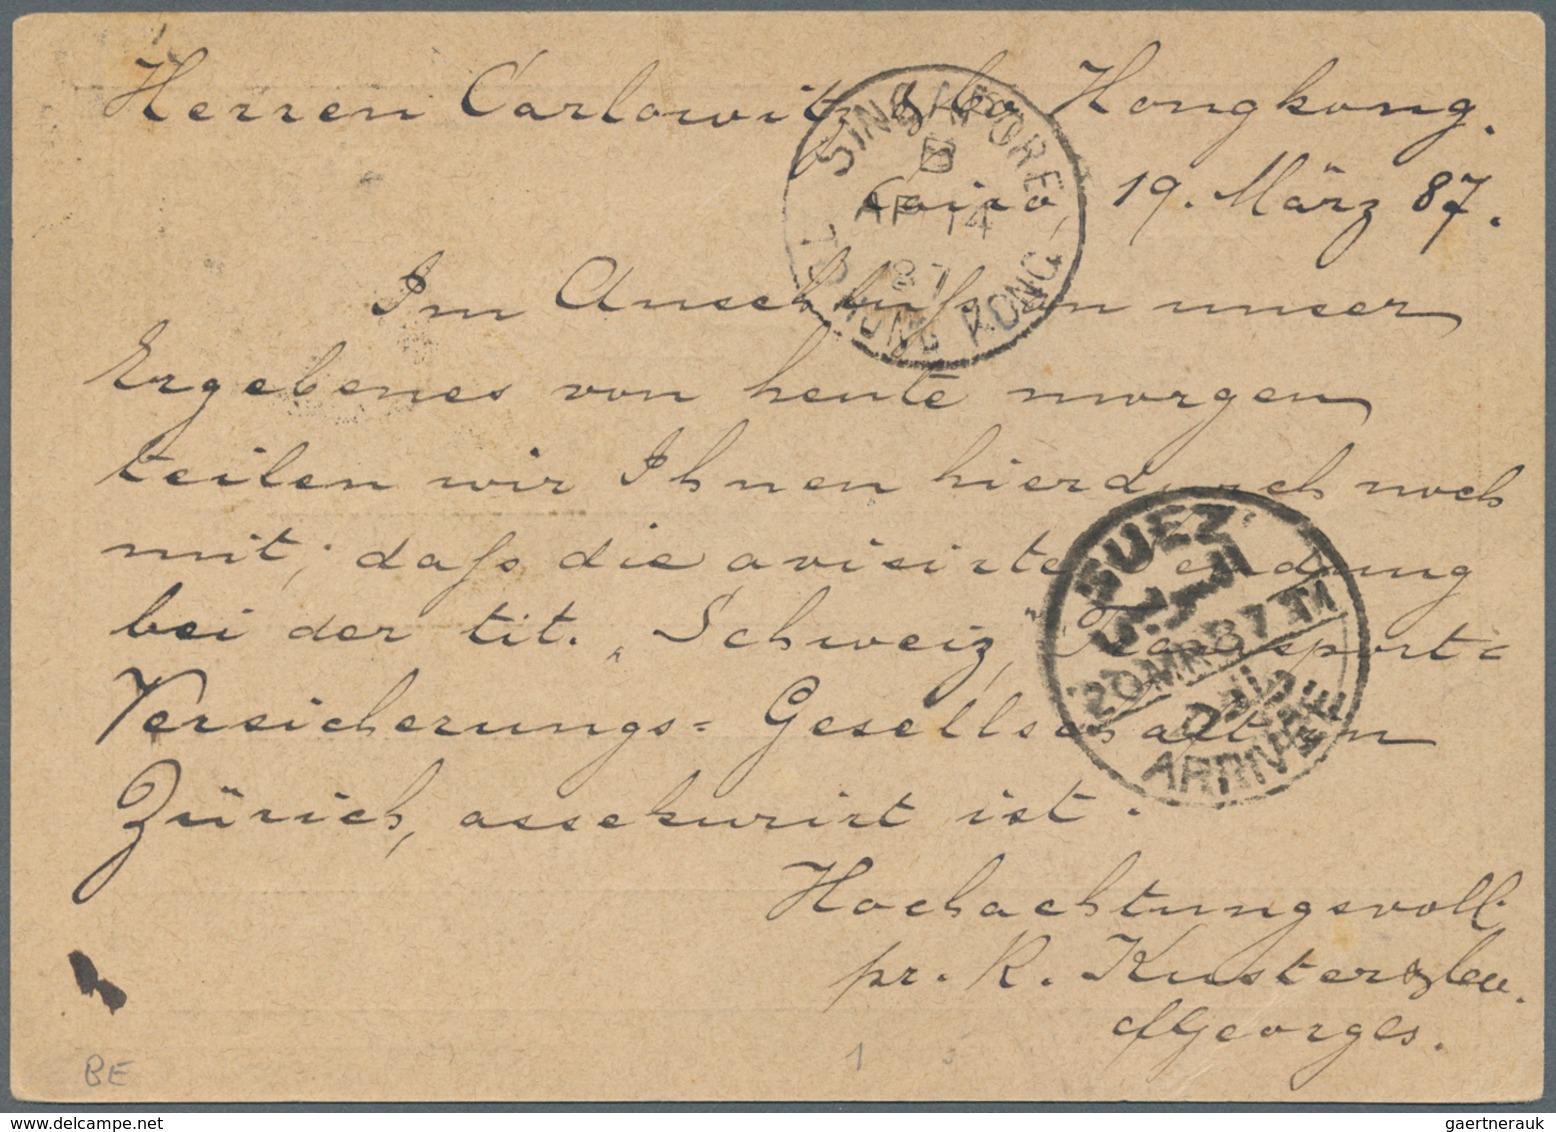 Herren Carlowitz & Co Hongkong.
Cairo, 19. März 87.
Im Anschluss an unser
Ergebenes von heute morgen
teilen wir Ihnen hierdurch noch
mit, dass die avisirte Sendung
bei der tit. „Schweiz" Transport=
Versicherungs= Gesellschaft in
Zürich, assekurirt ist.
Hochachtungsvoll
pr. R. Kuster & Co.
Georges.
SINGAPORE
B
AP 14
87
TO HONG KONG
SUEZ
السويس
20 MR 87 T1
ARRIVEE
BE
1
gaertnerauk | delcampe.net